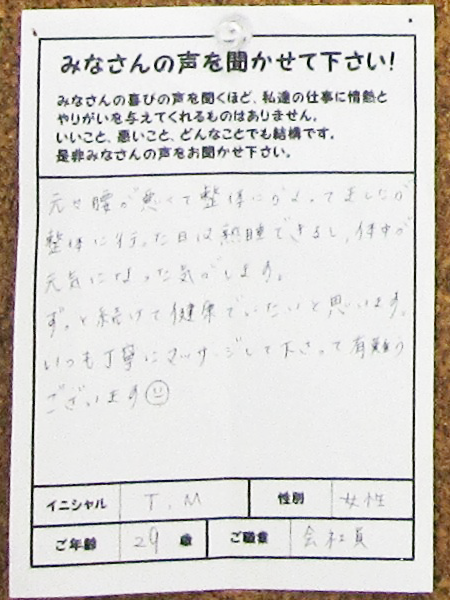 みなさんの声を聞かせて下さい!
みなさんの喜びの声を聞くほど、私達の仕事に情熱と
やりがいを与えてくれるものはありません。
いいこと、悪いこと、どんなことでも結構です。
是非みなさんの声をお聞かせ下さい。
元々腰が悪くて整体にかよってましたが
整体に行った日は熟睡できるし、体中が
元気になった気がします。
ずっと続けて健康でいたいと思います。
いつも丁寧にマッサージして下さって有難う
ございます
イニシャル T.M 性別 女性
ご年齢 29 歳 ご職業 会社員